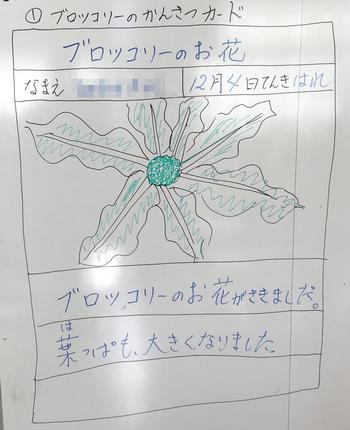 ① ブロッコリーのかんさつカード
ブロッコリーのお花
なまえ 12月4日てんきはれ
ブロッコリーのお花がさきました。
は
葉っぱも、大きくなりました。